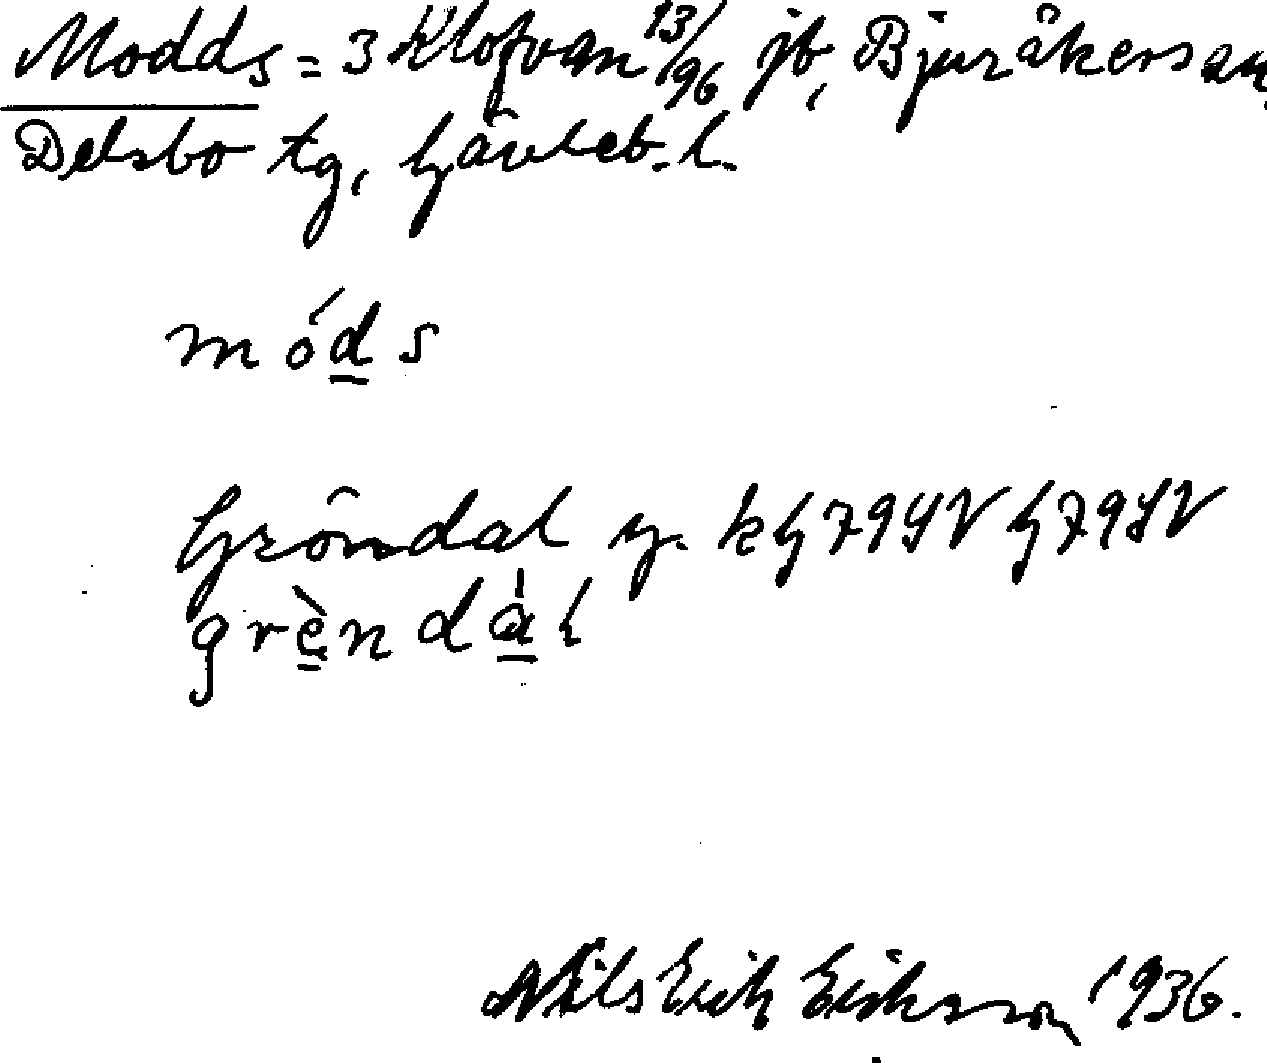 Modds = 3 Klofvan 13/96 jb, Bjuråkers sn,
Delsbo tg, Gävleb. l.
móds
Gröndal
grèndàl
Nils Erik Eriksson 1936.